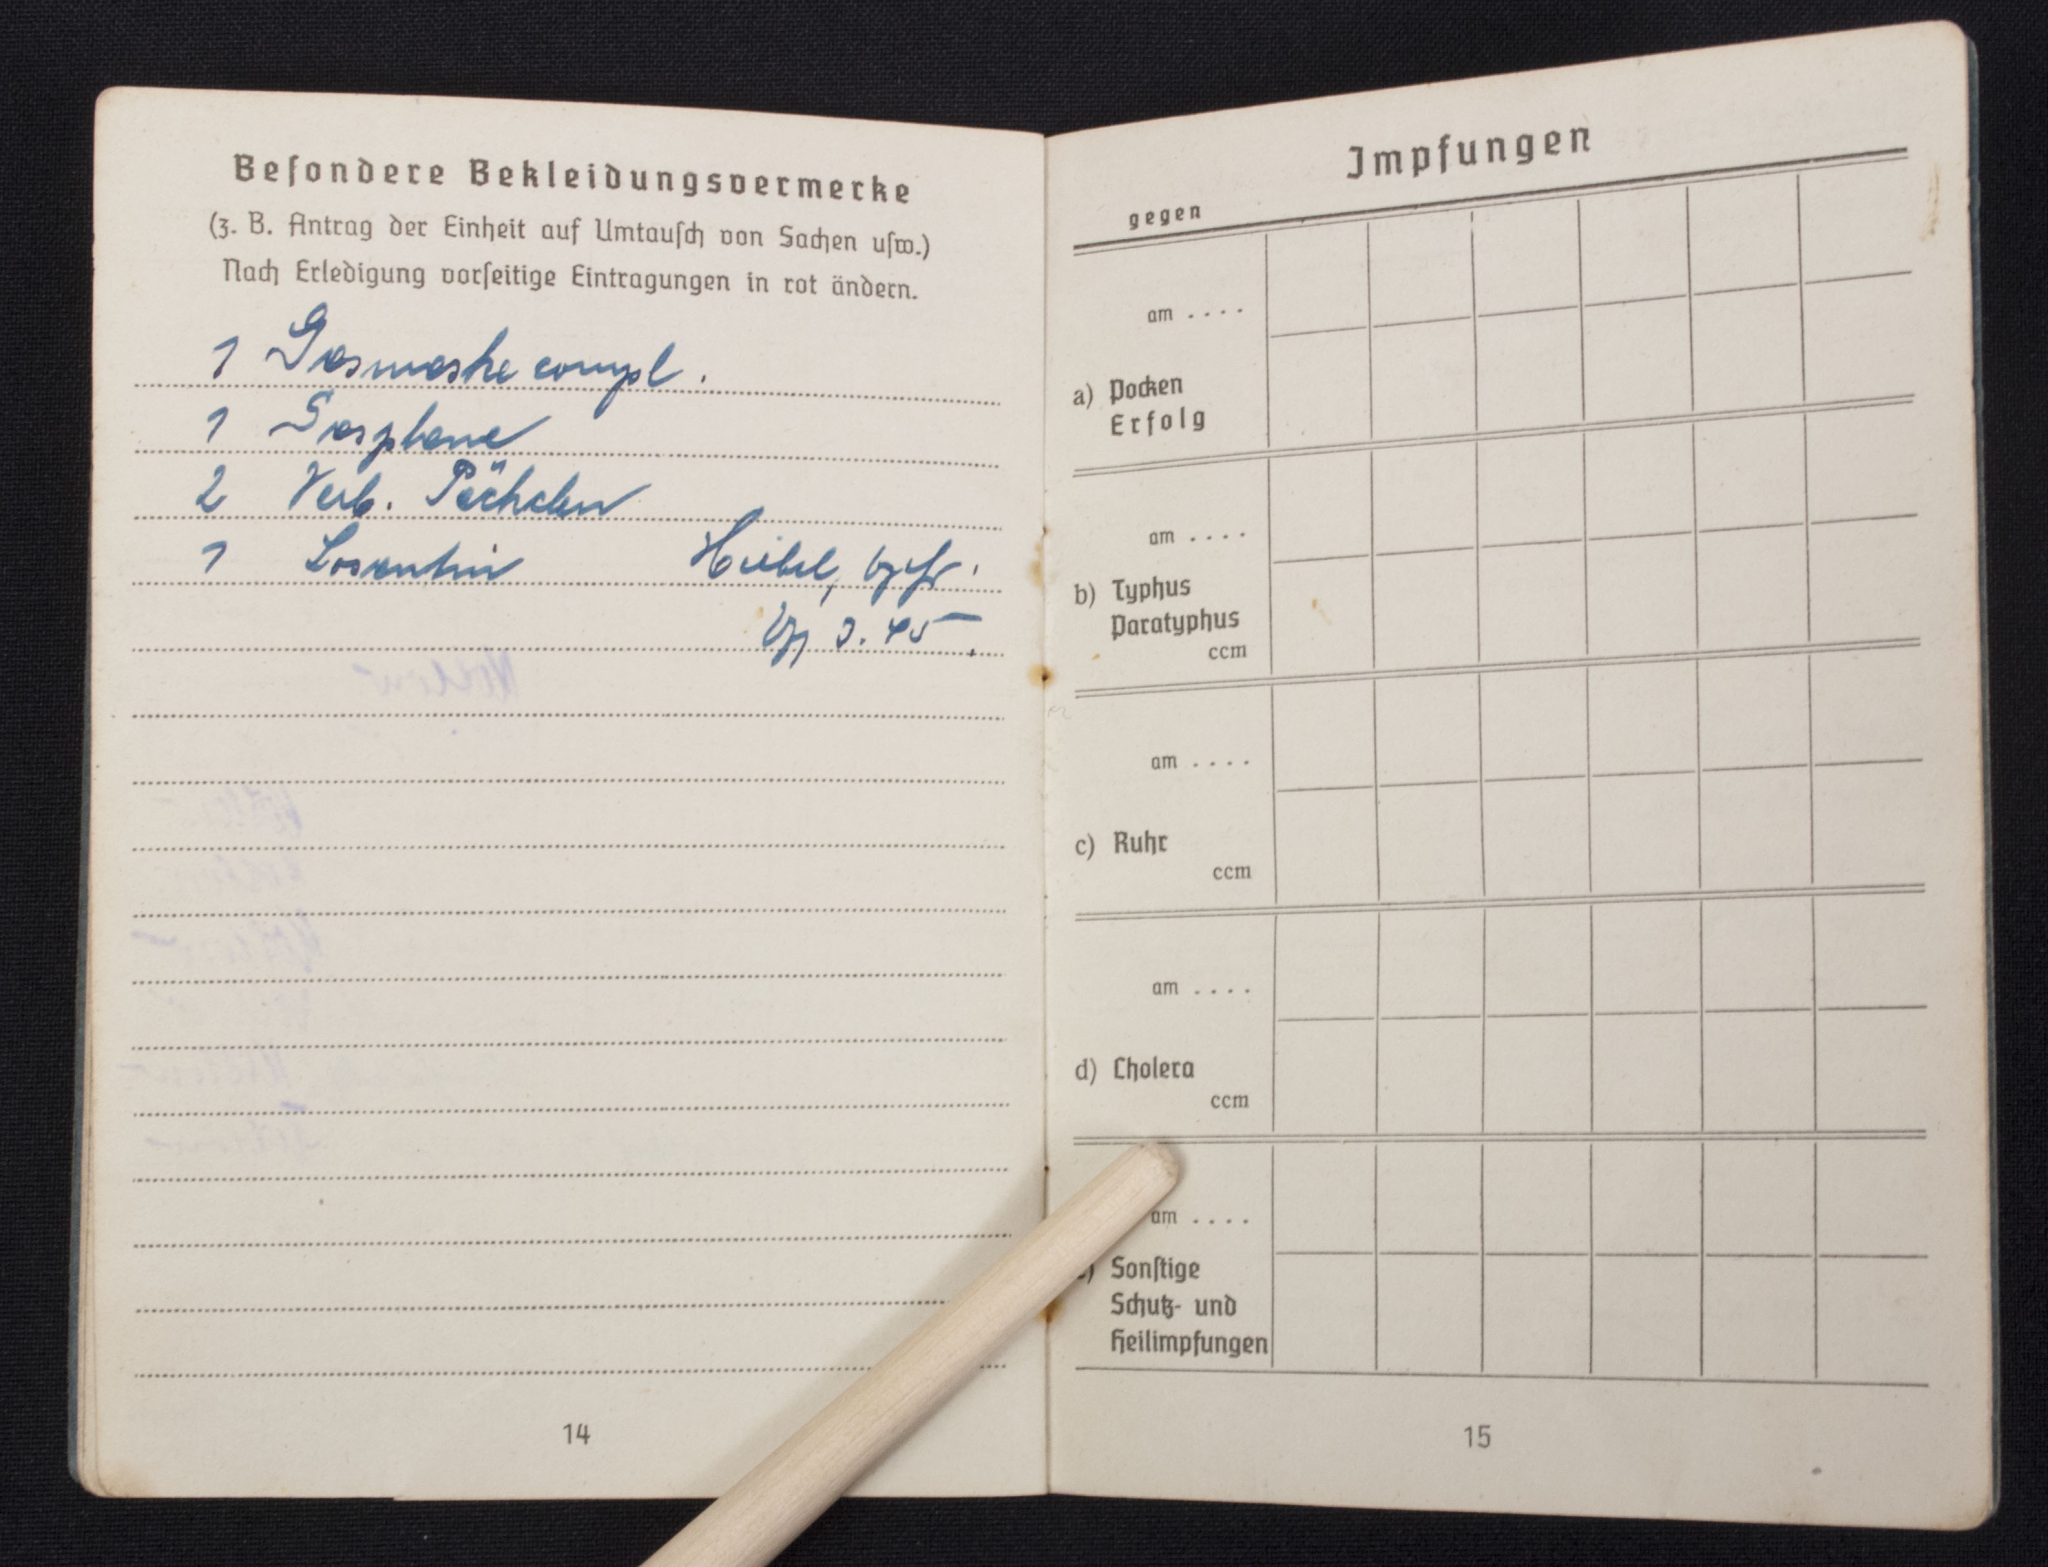 Besondere Bekleidungsvermerke
(z. B. Antrag der Einheit auf Umtausch von Sachen usw.)
Nach Erledigung vorseitige Eintragungen in rot ändern.
1 Gasmaske compl.
1 Gasplane
2 Verb. Päckchen
1 Losantin
3. 45
14
Impfungen
gegen
am . . . .
a) Pocken
Erfolg
am . . . .
b) Typhus
Paratyphus
ccm
am . . . .
c) Ruhr
ccm
am . . . .
d) Cholera
ccm
am . . . .
Sonstige
Schutz- und
Heilimpfungen
15